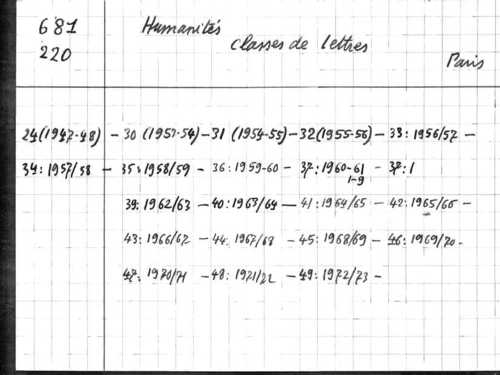 681
220
Humanités
classes de lettres
Paris
24(1947-48) - 30 (1953-54) - 31 (1954-55) - 32(1955-56) - 33: 1956/57 -
34: 1957/58 - 35: 1958/59 - 36: 1959-60 - 37: 1960-61 - 37: 1
1-9
39: 1962/63 - 40: 1963/64 - 41: 1964/65 - 42: 1965/66 -
43: 1966/67 - 44: 1967/68 - 45: 1968/69 - 46: 1969/70 -
47: 1970/71 - 48: 1971/72 - 49: 1972/73 -